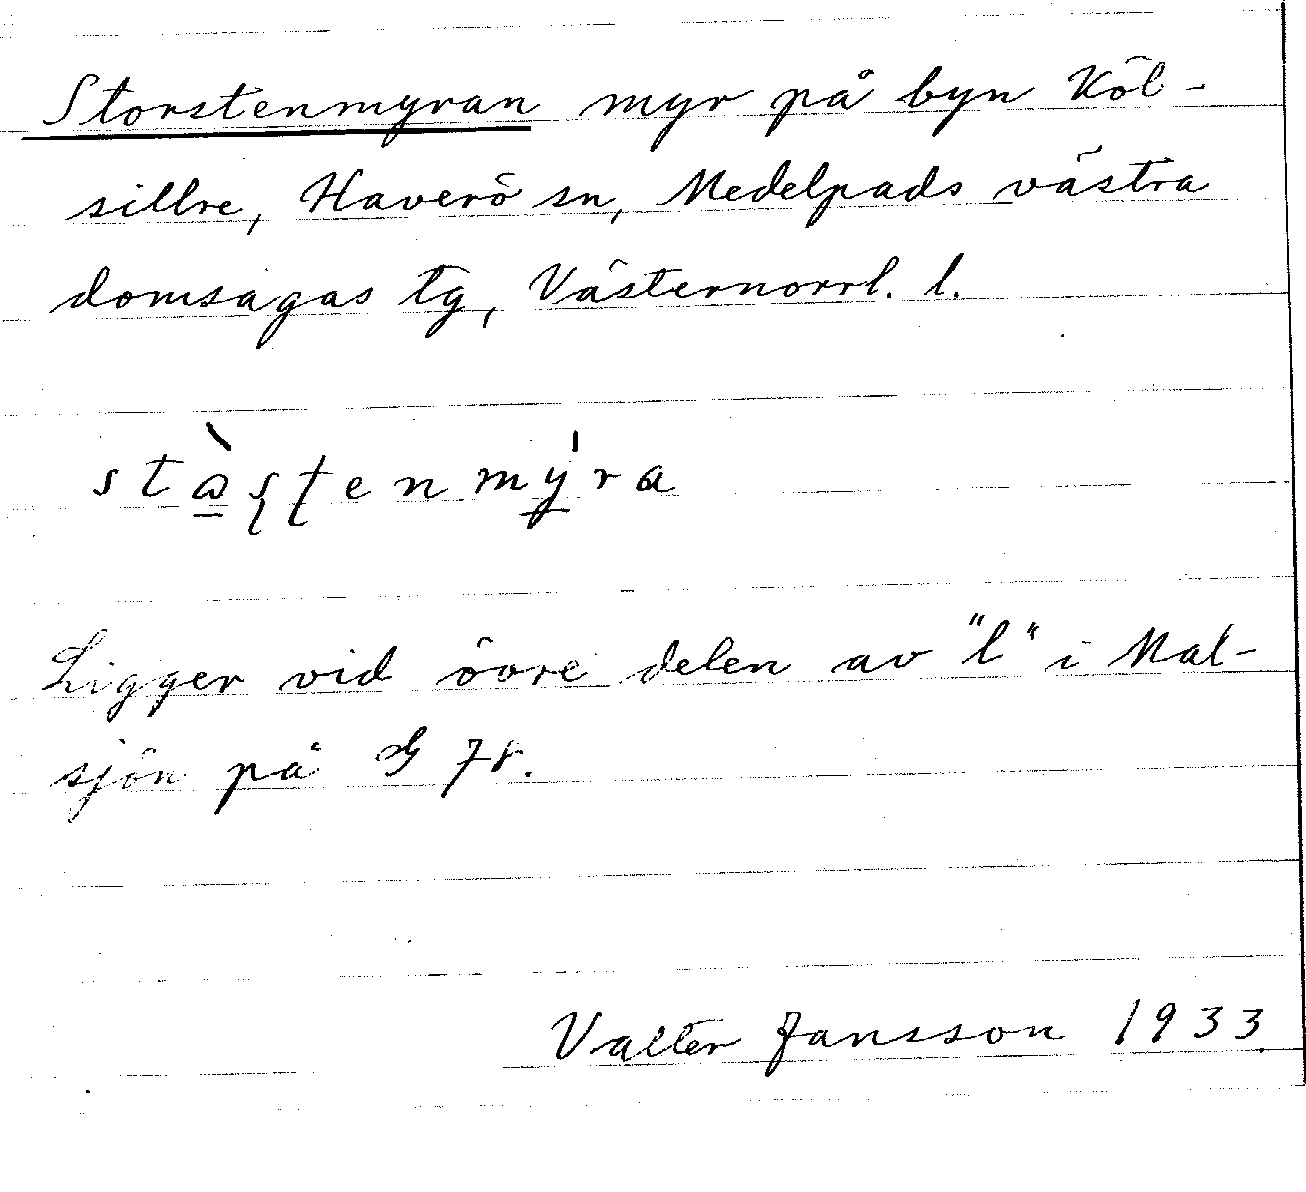 Storstenmyran myr på byn Köl-
sillre, Haverö sn, Medelpads västra
domsagas tg, Västernorrl. l.
stàʂʈenmy̍ra
Ligger vid övre delen av "l" i Mal-
sjön på G 78.
Valter Jansson 1933